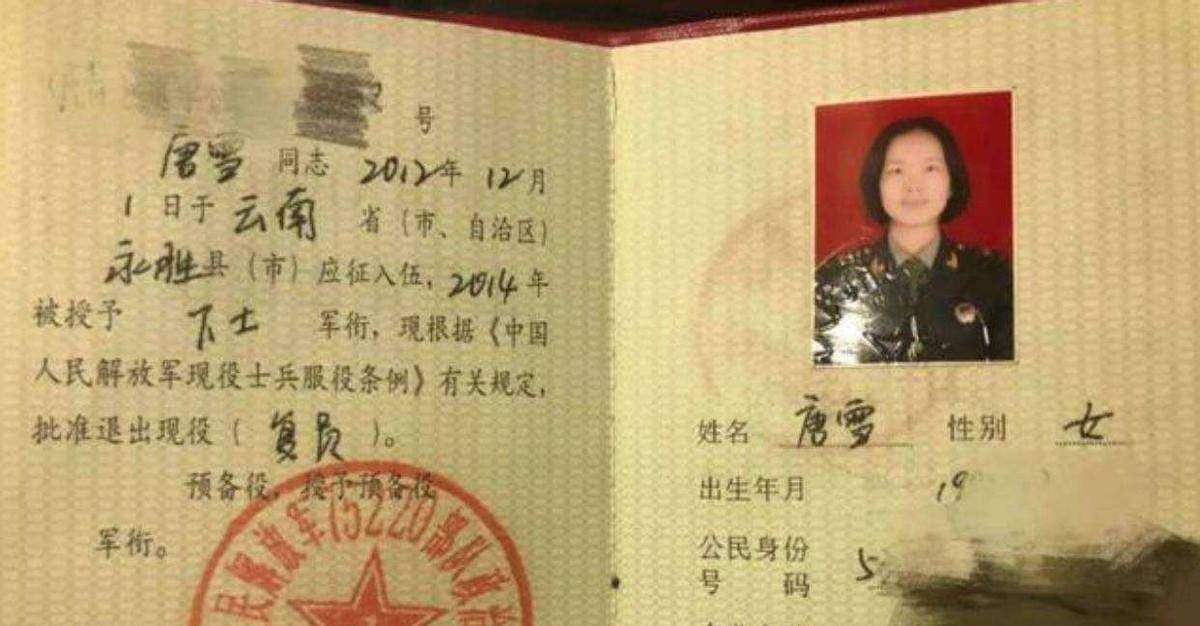 号
唐雪 同志 2012年 12月
1 日于 云南 省（市、自治区）
永胜县（市）应征入伍，2014年
被授予 下士 军衔，现根据《中国
人民解放军现役士兵服役条例》有关规定，
批准退出现役（ 复员 ）。
预备役，授予预备役
军衔。
民解放军75220部队政治
姓名 唐雪 性别 女
出生年月 19
公民身份 5
号码